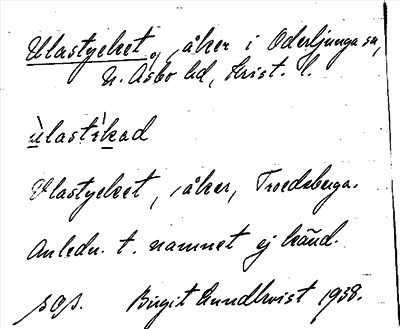 Ulastycket, åker i Oderljunga sn,
N. Åsbo hd, Krist. l.
ùlastìkad
Ulastycket, åker, Troedsberga.
Anledn. t. namnet ej känd.
sgs. Birgit Lundkvist 1938.